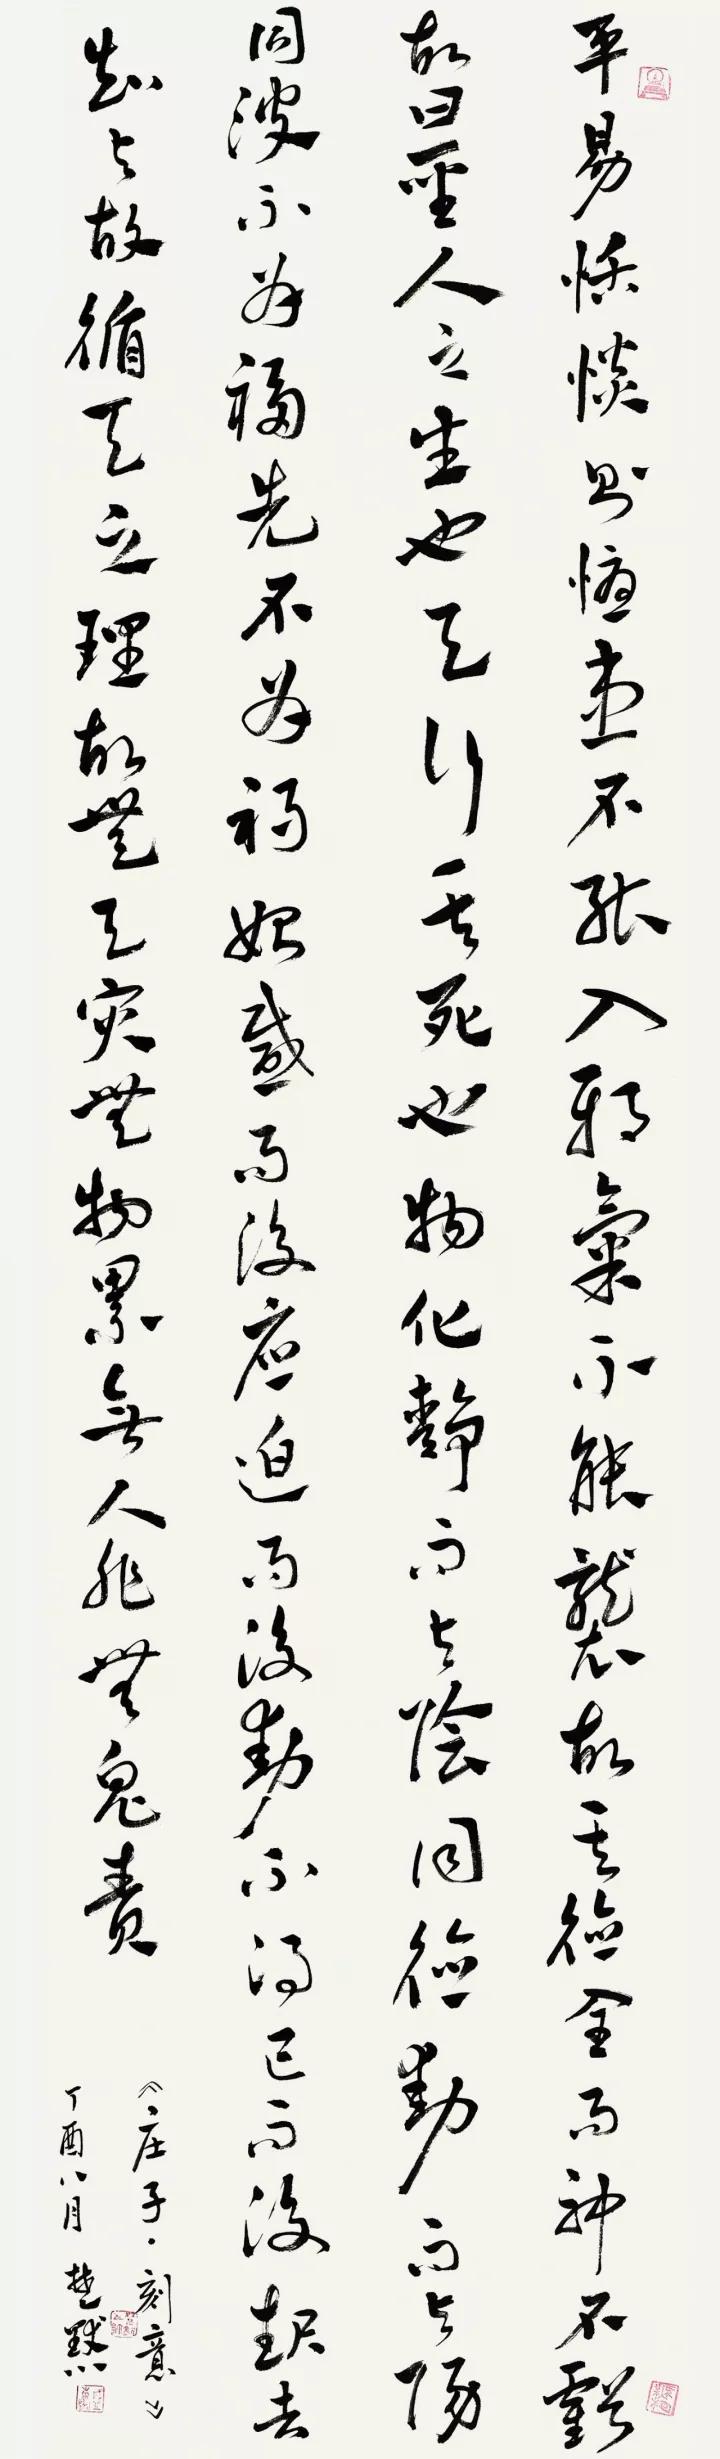 平易恬惔則憂患不能入邪氣不能襲故其德全而神不虧
故曰聖人之生也天行其死也物化靜而与陰同德動而与陽
同波不为福先不为禍始感而後應迫而後動不得已而後起去
知与故循天之理故無天災無物累無人非無鬼責
《庄子·刻意》
丁酉八月 楚默